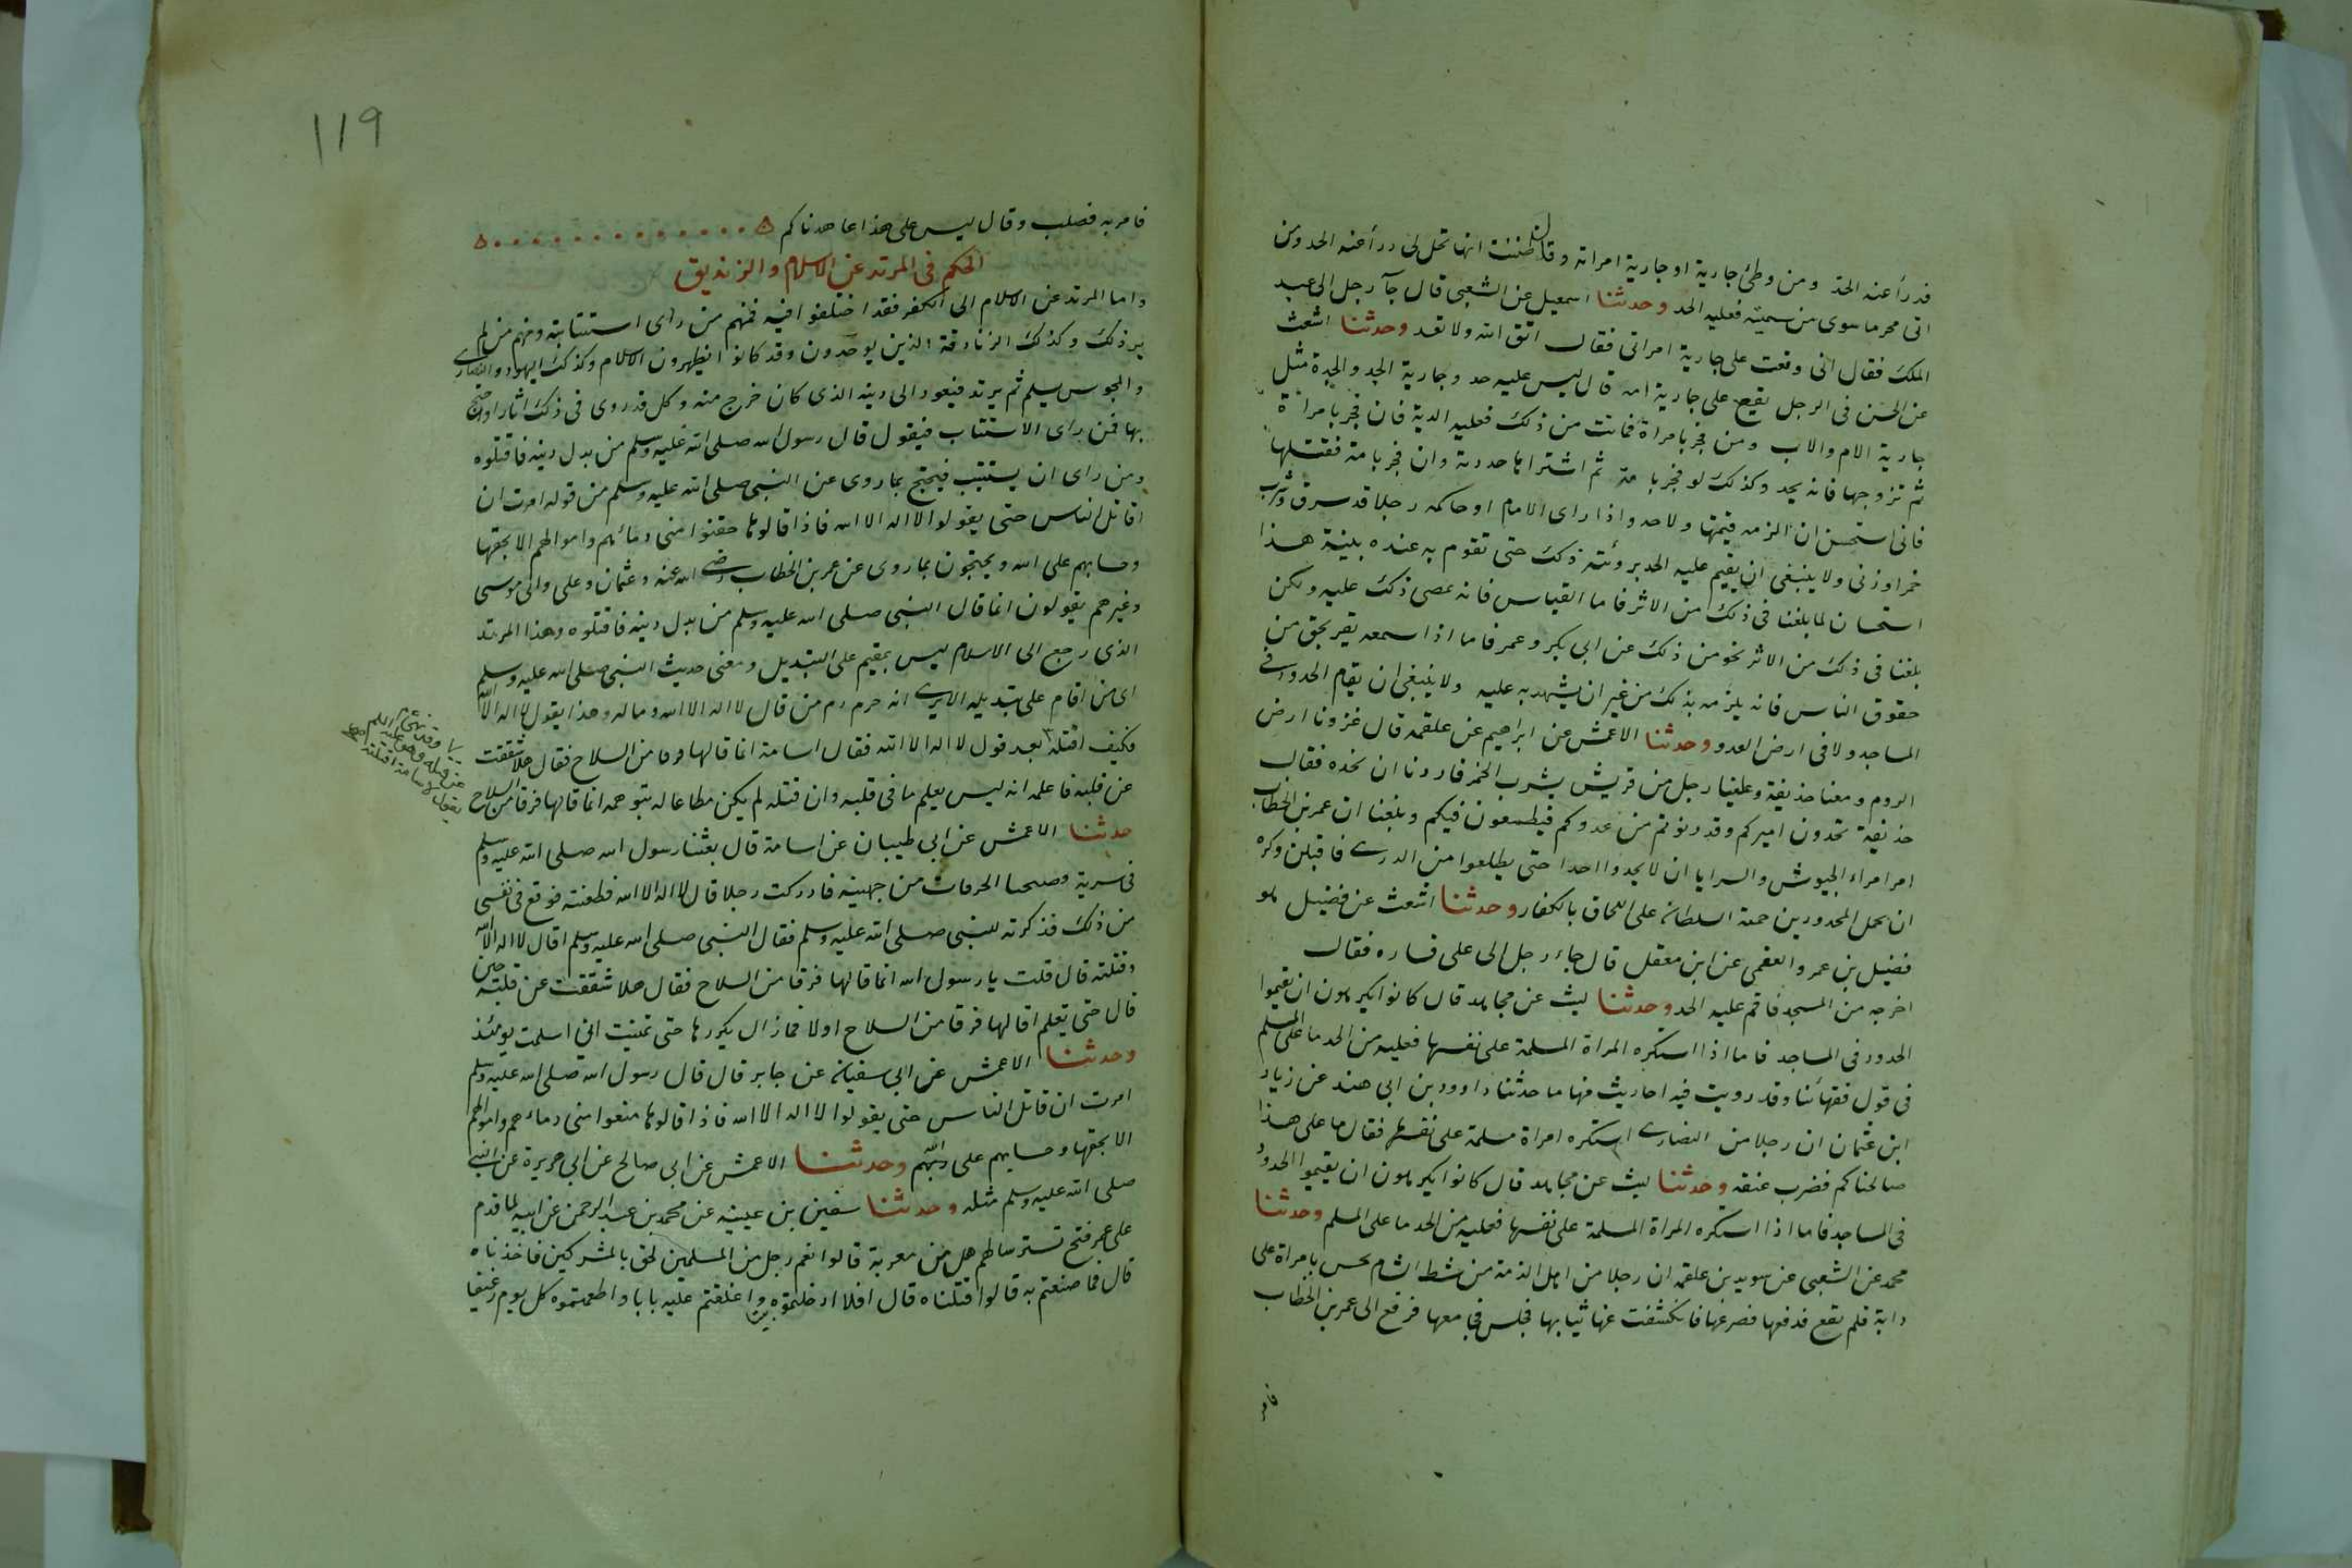 فدرأ عنه الحد ومن وطئ جارية او جارية امراته وقال ظننت انها تحل لى درأ عنه الحد ومن
اتى محرما سوى من سميته فعليه الحد وحدثنا اسمعيل عن الشعبى قال جآ رجل الى عبد
الملك فقال انى وقعت على جارية امراتى فقال اتق الله ولا تعد وحدثنا اشعث
عن الحسن فى الرجل يقع على جارية امه قال ليس عليه حد وجارية الجد والجدة مثل
جارية الام والاب ومن فجر بامراة فماتت من ذلك فعليه الدية فان فجر بامراة
ثم تزوجها فانه يحد وكذلك لو فجر بامة ثم اشتراها حددته وان فجر بامة فقتلها
فانى استحسن ان الزمه قيمتها ولا حد واذا راى الامام او حاكمه رجلا قد سرق وشرب
خمرا وزنى ولا ينبغى ان يقيم عليه الحد برؤيته ذلك حتى تقوم به عنده بينة هذا
استحسان لما بلغنا فى ذلك من الاثر فاما القياس فانه يمضى ذلك عليه ولكن
بلغنا فى ذلك من الاثر نحو من ذلك عن ابى بكر وعمر فاما اذا سمعه يقر بحق من
حقوق الناس فانه يلزمه بذلك من غير ان يشهد به عليه ولا ينبغى ان يقام الحدود فى
المساجد ولا فى ارض العدو وحدثنا الاعمش عن ابراهيم عن علقمة قال غزونا ارض
الروم ومعنا حذيفة وعلينا رجل من قريش يشرب الخمر فاردنا ان نحده فقال
حذيفة تحدون اميركم وقد دنوتم من عدوكم فيطمعون فيكم وبلغنا ان عمر بن الخطاب
امر امراء الجيوش والسرايا ان لا يجلدوا احدا حتى يطلعوا من الدرب قافلين وكره
ان يحمل المحدودين حمية الشيطان على اللحاق بالكفار وحدثنا اشعث عن فضيل هو
فضيل بن عمرو الفقمى عن ابن معقل قال جاء رجل الى على فساره فقال
اخرجه من المسجد فاقم عليه الحد وحدثنا ليث عن مجاهد قال كانوا يكرهون ان يقيموا
الحدود فى المساجد فاما اذا استكره المراة المسلمة على نفسها فعليه من الحد ما على المسلم
فى قول فقهائنا وقد رويت فيه احاديث منها ما حدثنا داوود بن ابى هند عن زياد
ابن عثمان ان رجلا من النصارى استكره امراة مسلمة على نفسها فقال ما على هذا
صالحناكم فضرب عنقه وحدثنا ليث عن مجاهد قال كانوا يكرهون ان يقيموا الحدود
فى المساجد فاما اذا استكره المراة المسلمة على نفسها فعليه من الحد ما على المسلم وحدثنا
محمد عن الشعبى عن سويد بن علقمة ان رجلا من اهل الذمة من نبط الشام نخس بامراة على
دابة فلم تقع فدفعها فصرعها فانكشفت عنها ثيابها فجلس فجامعها فرفع الى عمر بن الخطاب
فامر
119
فامر به فصلب وقال ليس على هذا عاهدناكم
الحكم فى المرتد عن الاسلام والزنديق
واما المرتد عن الاسلام الى الكفر فقد اختلفوا فيه فمنهم من راى استتابته ومنهم من لم
ير ذلك وكذلك الزنادقة الذين يوحدون وقد كانوا يظهرون الاسلام وكذلك اليهود والنصارى
والمجوس يسلم ثم يرتد فيعود الى دينه الذى كان خرج منه وكل قد روى فى ذلك اثارا واحتج
بها فمن راى الا يستتاب فيقول قال رسول الله صلى الله عليه وسلم من بدل دينه فاقتلوه
ومن راى ان يستتيب فيحتج بما روى عن النبى صلى الله عليه وسلم من قوله امرت ان
اقاتل الناس حتى يقولوا لا اله الا الله فاذا قالوها حقنوا منى دمائهم واموالهم الا بحقها
وحسابهم على الله ويحتجون بما روى عن عمر بن الخطاب رضى الله عنه وعثمان وعلى وابى موسى
وغيرهم يقولون انما قال النبى صلى الله عليه وسلم من بدل دينه فاقتلوه وهذا المرتد
الذى رجع الى الاسلام ليس بمقيم على التبديل ومعنى حديث النبى صلى الله عليه وسلم
اى من اقام على تبديله الا يرى انه حرم دم من قال لا اله الا الله وماله وهذا يقول لا اله الا الله
فكيف اقتله بعد قول لا اله الا الله فقال اسامة انما قالها فرقا من السلاح فقال هلا شققت
عن قلبه فاعلمه انه ليس يعلم ما فى قلبه وان قتله لم يكن مطلقا له بتوهمه انما قالها فرقا من السلاح
وقد نهى عم
عن قتله وهو عليه السلم
يقول لاسامة اقتلته
حدثنا الاعمش عن ابى ظبيان عن اسامة قال بعثنا رسول الله صلى الله عليه وسلم
فى سرية فصبحنا الحرقات من جهينة فادركت رجلا قال لا اله الا الله فطعنته فوقع فى نفسى
من ذلك فذكرته للنبى صلى الله عليه وسلم فقال النبى صلى الله عليه وسلم اقال لا اله الا الله
وقتلته قال قلت يا رسول الله انما قالها فرقا من السلاح فقال هلا شققت عن قلبه حين
قال حتى تعلم اقالها فرقا من السلاح اولا فما زال يكررها حتى تمنيت انى اسلمت يومئذ
وحدثنا الاعمش عن ابى سفيان عن جابر قال قال رسول الله صلى الله عليه وسلم
امرت ان قاتل الناس حتى يقولوا لا اله الا الله فاذا قالوها منعوا منى دماءهم واموالهم
الا بحقها وحسابهم على ربهم وحدثنا الاعمش عن ابى صالح عن ابى هريرة عن النبى
صلى الله عليه وسلم مثله وحدثنا سفين بن عيينه عن محمد بن عبد الرحمن عن ابيه لما قدم
على عمر فتح تستر سالهم هل من مغربة قالوا نعم رجل من المسلمين لحق بالمشركين فاخذناه
قال فما صنعتم به قالوا قتلناه قال افلا ادخلتموه بيتا واغلقتم عليه بابا واطعمتموه كل يوم رغيفا